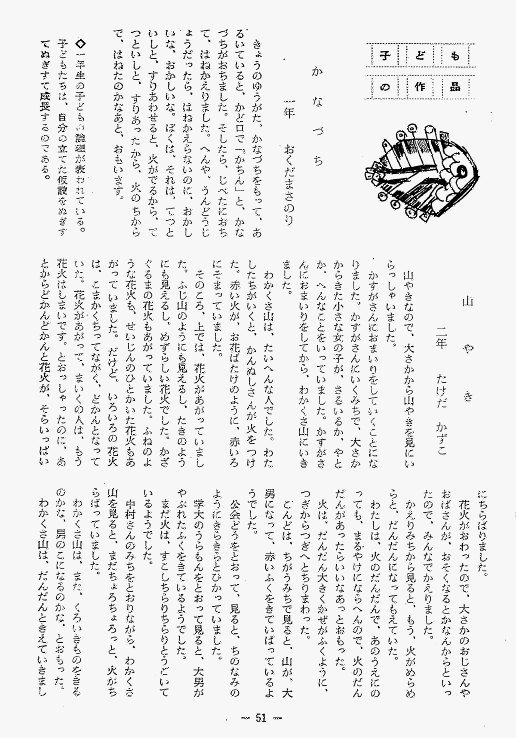 子ども
の作品
かなづち
一年　おくだまさのり
きょうのゆうがた、かなづちをもって、あ
るいていると、かど口で「かちん」と、かな
づちがおちました。そしたら、じべたにおち
て、はねかえりました。へんや、うんどうじ
ょうだったら、はねかえらないのに、おかし
いな、おかしいな。ぼくは、それは、てつと
いしと、すりあわせると、火がでるから、て
つといしと、すりあったから、火のちから
で、はねたのかなあと、おもいます。
◇一年生の子どもの論理が表われている。
子どもたちは、自分の立てた仮説をぬぎす
てぬぎすて成長するのである。
山やき
二年　たけだ　かずこ
山やきなので、大さかから山やきを見にい
らっしゃいました。
かすがさんにおまいりをしていくことにな
りました。かすがさんにいくみちで、大さか
からきた小さな女の子が、さるいるか、やと
か、へんなことをいっていました。かすがさ
んにおまいりをしてから、わかくさ山にいき
ました。
わかくさ山は、たいへんな人でした。わた
したちがいくと、かんぬしさんが火をつけ
た。赤い火が、お花ばたけのように、赤いろ
にそまっていました。
そのころ、上では、花火があがっていまし
た。ふじ山のようにも見えるし、たきのよう
にも見えるし、めずらしい花火でした。かざ
ぐるまの花火もあがっていました。ふねのよ
うな花火も、せいじんのひとかいた花火もあ
がっていました。だけど、いろいろの花火
は、こまかくちってながく、どかんとなって
いた。花火があがって、まいくの人は、もう
花火はしまいです。とおっしゃったのに、あ
とからどかんどかんと花火が、そらいっぱい
にちらばりました。
花火がおわったので、大さかのおじさんや
おばさんが、おそくなるとかなんからといっ
たので、みんなでかえりました。
かえりみちから見ると、もう、火がめらめ
らと、だんだんになってもえていた。
わたしは、火のだんだんで、あのうえにの
っても、まるやけにならへんので、火のだん
だんがあったらいいなあっとおもった。
火は、だんだん大きくかぜがふくように、
つぎからつぎへとちりまわった。
こんどは、ちがうみちで見ると、山が、大
男になって、赤いふくをきていばっているよ
うでした。
公会どうをとおって、見ると、ちのなみの
ようにきらきらとひかっていました。
学大のうらもんをとおって見ると、大男が
やぶれたふくをきているようでした。
まだ火は、すこしちらちらりとうごいて
いるようでした。
中村さんのみちをとおりながら、わかくさ
山を見ると、まだちょろちょろっと、火がち
らばっていました。
わかくさ山は、また、くろいきものをきる
のかな、男のこになるのかな、とおもった。
わかくさ山は、だんだんときえていきまし
— 51 —